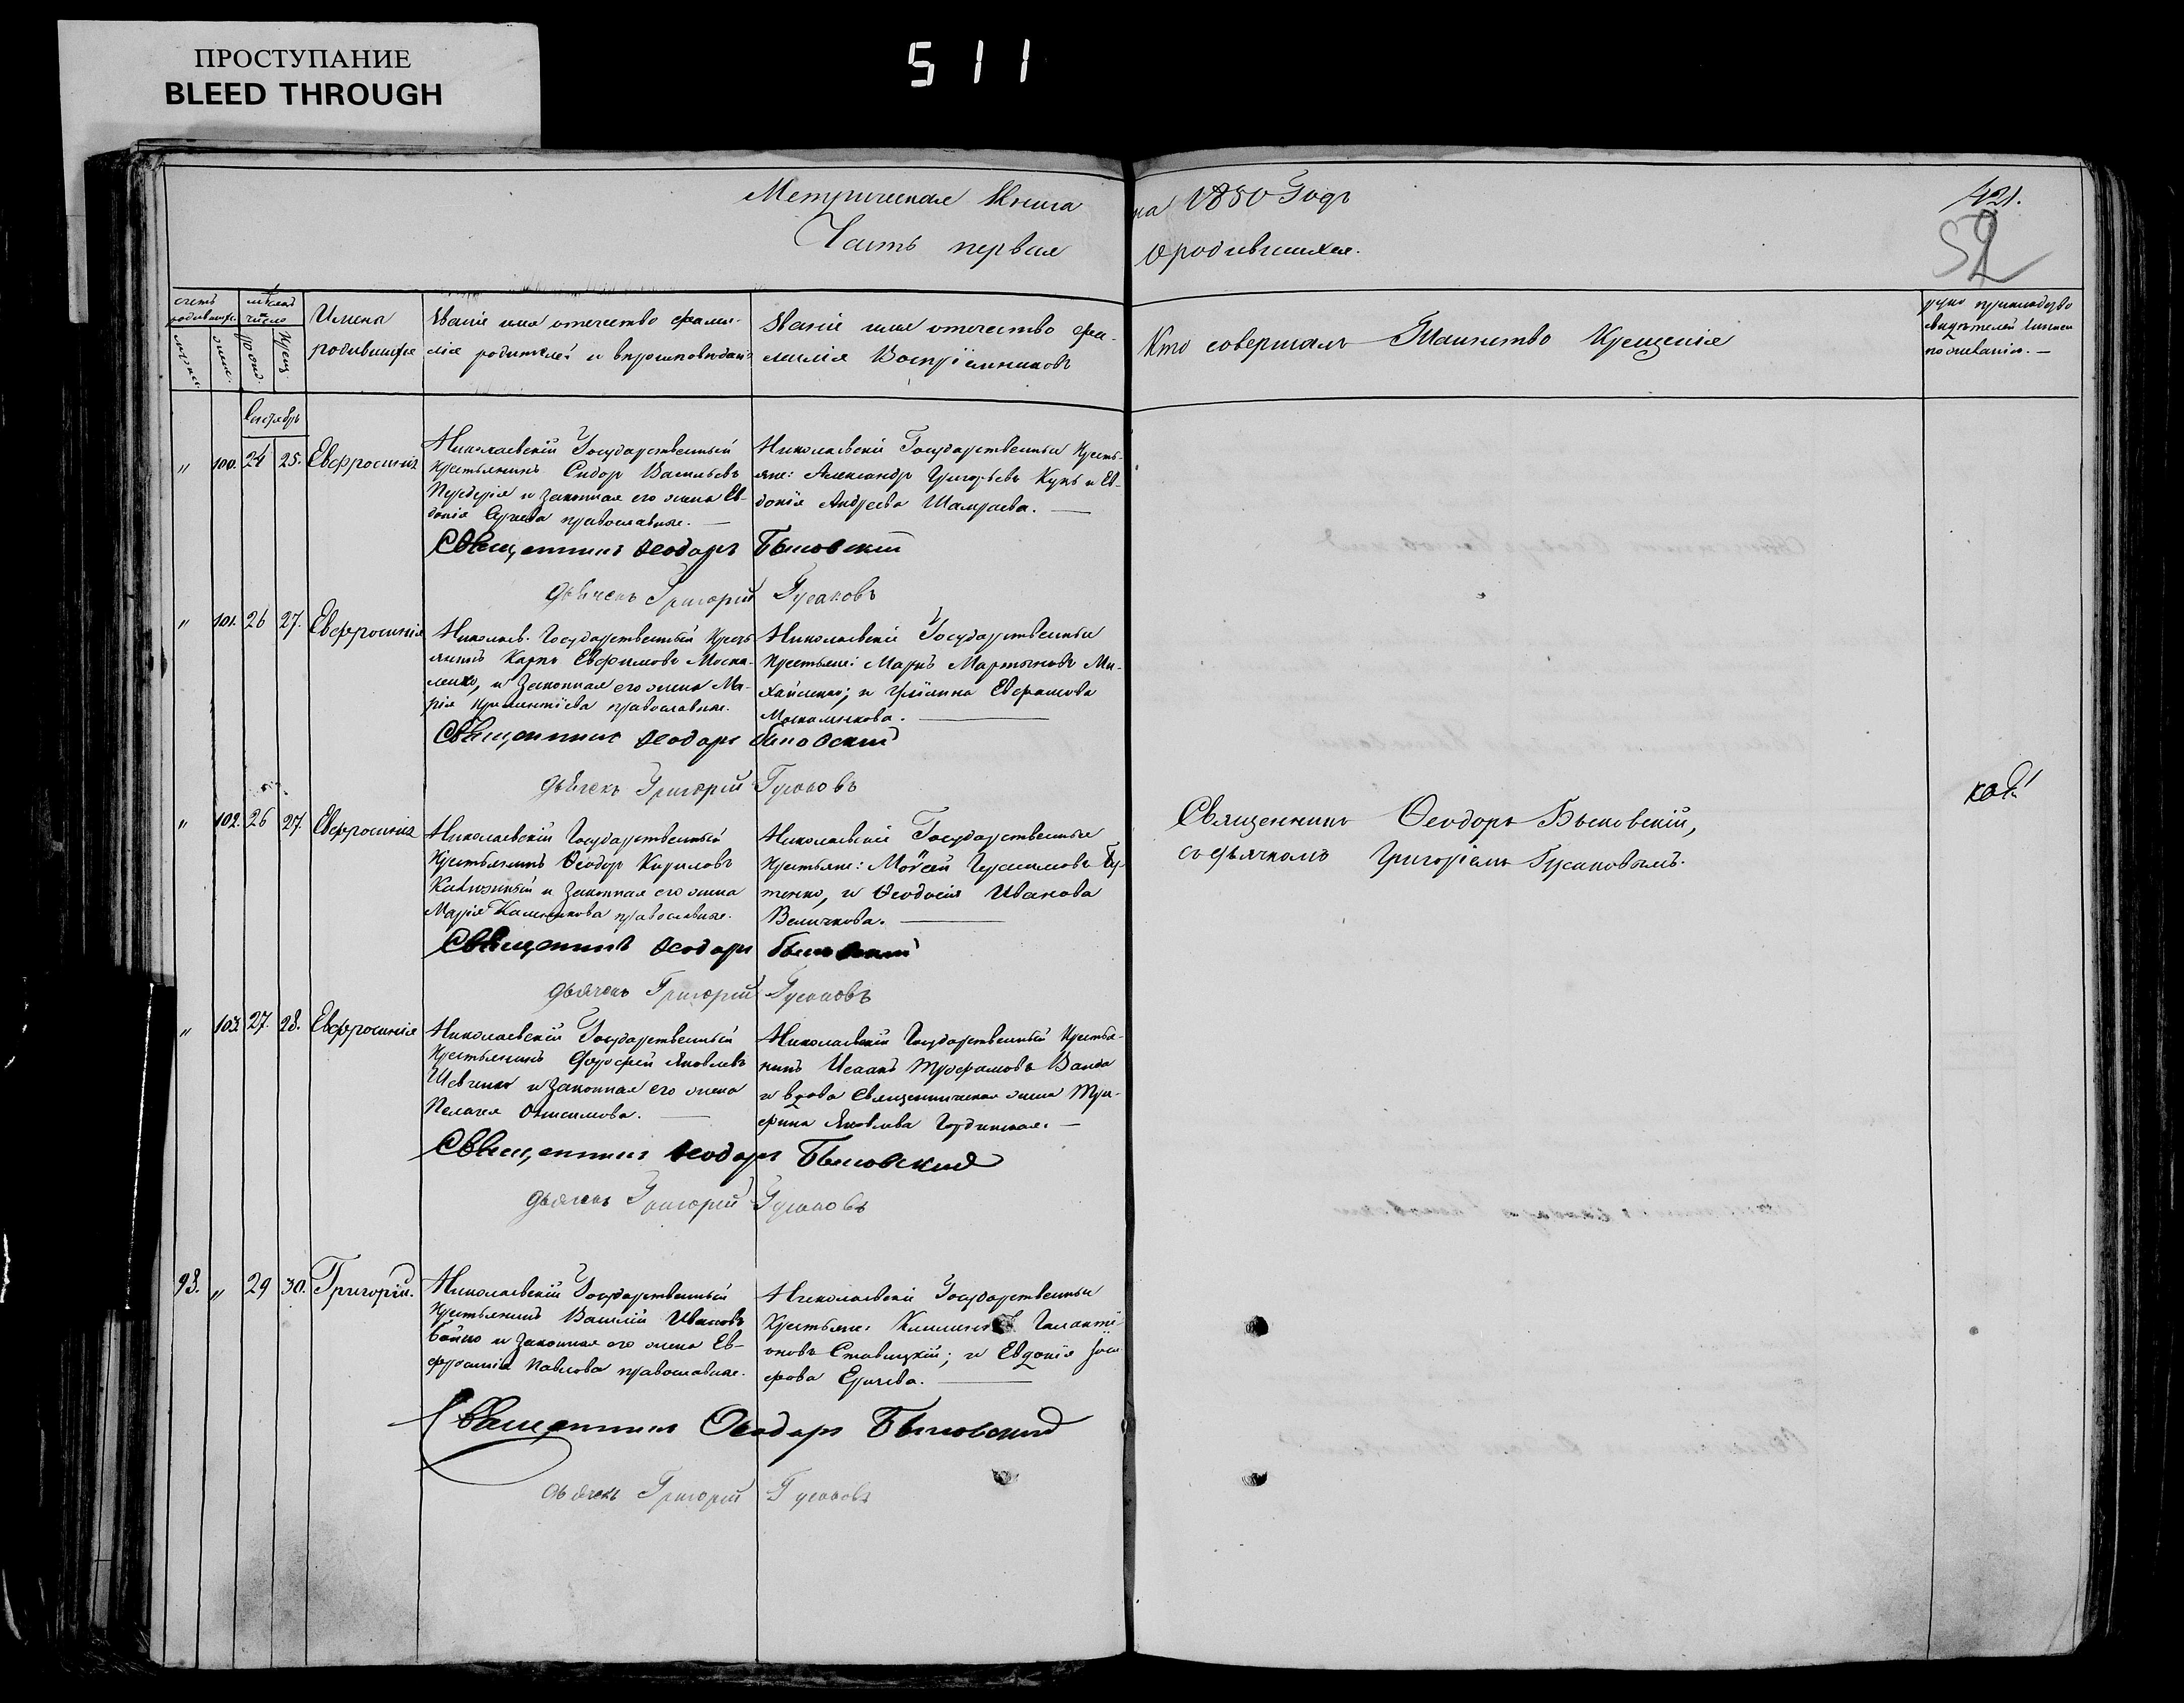 ПРОСТУПАНИЕ
BLEED THROUGH
511
Метрическая Книга на 1850 Годъ
Часть первая о родившихся.
421.
52
Имена
родившихся
Званіе имя отечество фами-
лія родителей и
Званіе имя отечество фа-
милія Воспріемниковъ
Кто совершалъ Таинство Крещенія
100. 24 25. Евфросинія
Николаевскій Государственный
крестьянинъ Сидор Васильевъ
и законная его жена Ев-
докія православные. —
Николаевскіе Государственные Кресть-
яне: Александр Григорьевъ Кунъ и Ев-
докія Андреева Шамраева. —
Священникъ Ѳеодоръ Быковскій
дьячекъ Григорій Гусаковъ
101. 26 27. Евфросинія
Николаев. Государственный Крест-
янинъ Карпъ Евфимовъ Моска-
ленко, и Законная его жена Ма-
рія православные.
Николаевскіе Государственные
Крестьяне: Маркъ Мартыновъ Ми-
хайленко; и Евфимова
Москаленкова. —
Священникъ Ѳеодоръ Быковскій
дьячекъ Григорій Гусаковъ
102. 26 27. Евфросинія
Николаевскій Государственный
Крестьянинъ Ѳеодор Кириловъ
и Законная его жена
Марія православные.
Николаевскіе Государственные
Крестьяне: Моѵсей Герасимовъ
и Ѳеодосія Иванова
Величкова. —
Священникъ Ѳеодоръ Быковскій
дьячекъ Григорій Гусаковъ
Священникъ Ѳеодоръ Быковскій,
съ дьячкомъ Григоріемъ Гусаковымъ.
103. 27. 28. Евфросинія
Николаевскій Государственный
Крестьянинъ Дорофей Яковлевъ
Шевченко и Законная его жена
Пелагея Онисимова. —
Николаевскій Государственный Крестья-
нинъ Исаакъ Трофимовъ
и вдова Священническая жена Три-
фина Яковлева —
Священникъ Ѳеодоръ Быковскій
дьячекъ Григорій Гусаковъ
93. " 29 30. Григорій.
Николаевскій Государственный
Крестьянинъ Василій Ивановъ
Бойко и Законная его жена Ев-
фросинія Павлова православные.
Николаевскіе Государственные
Крестьяне: Галакті-
оновъ Ставицкій; и Евдокія Іоси-
фова —
Священникъ Ѳеодоръ Быковскій
дьячекъ Григорій Гусаковъ